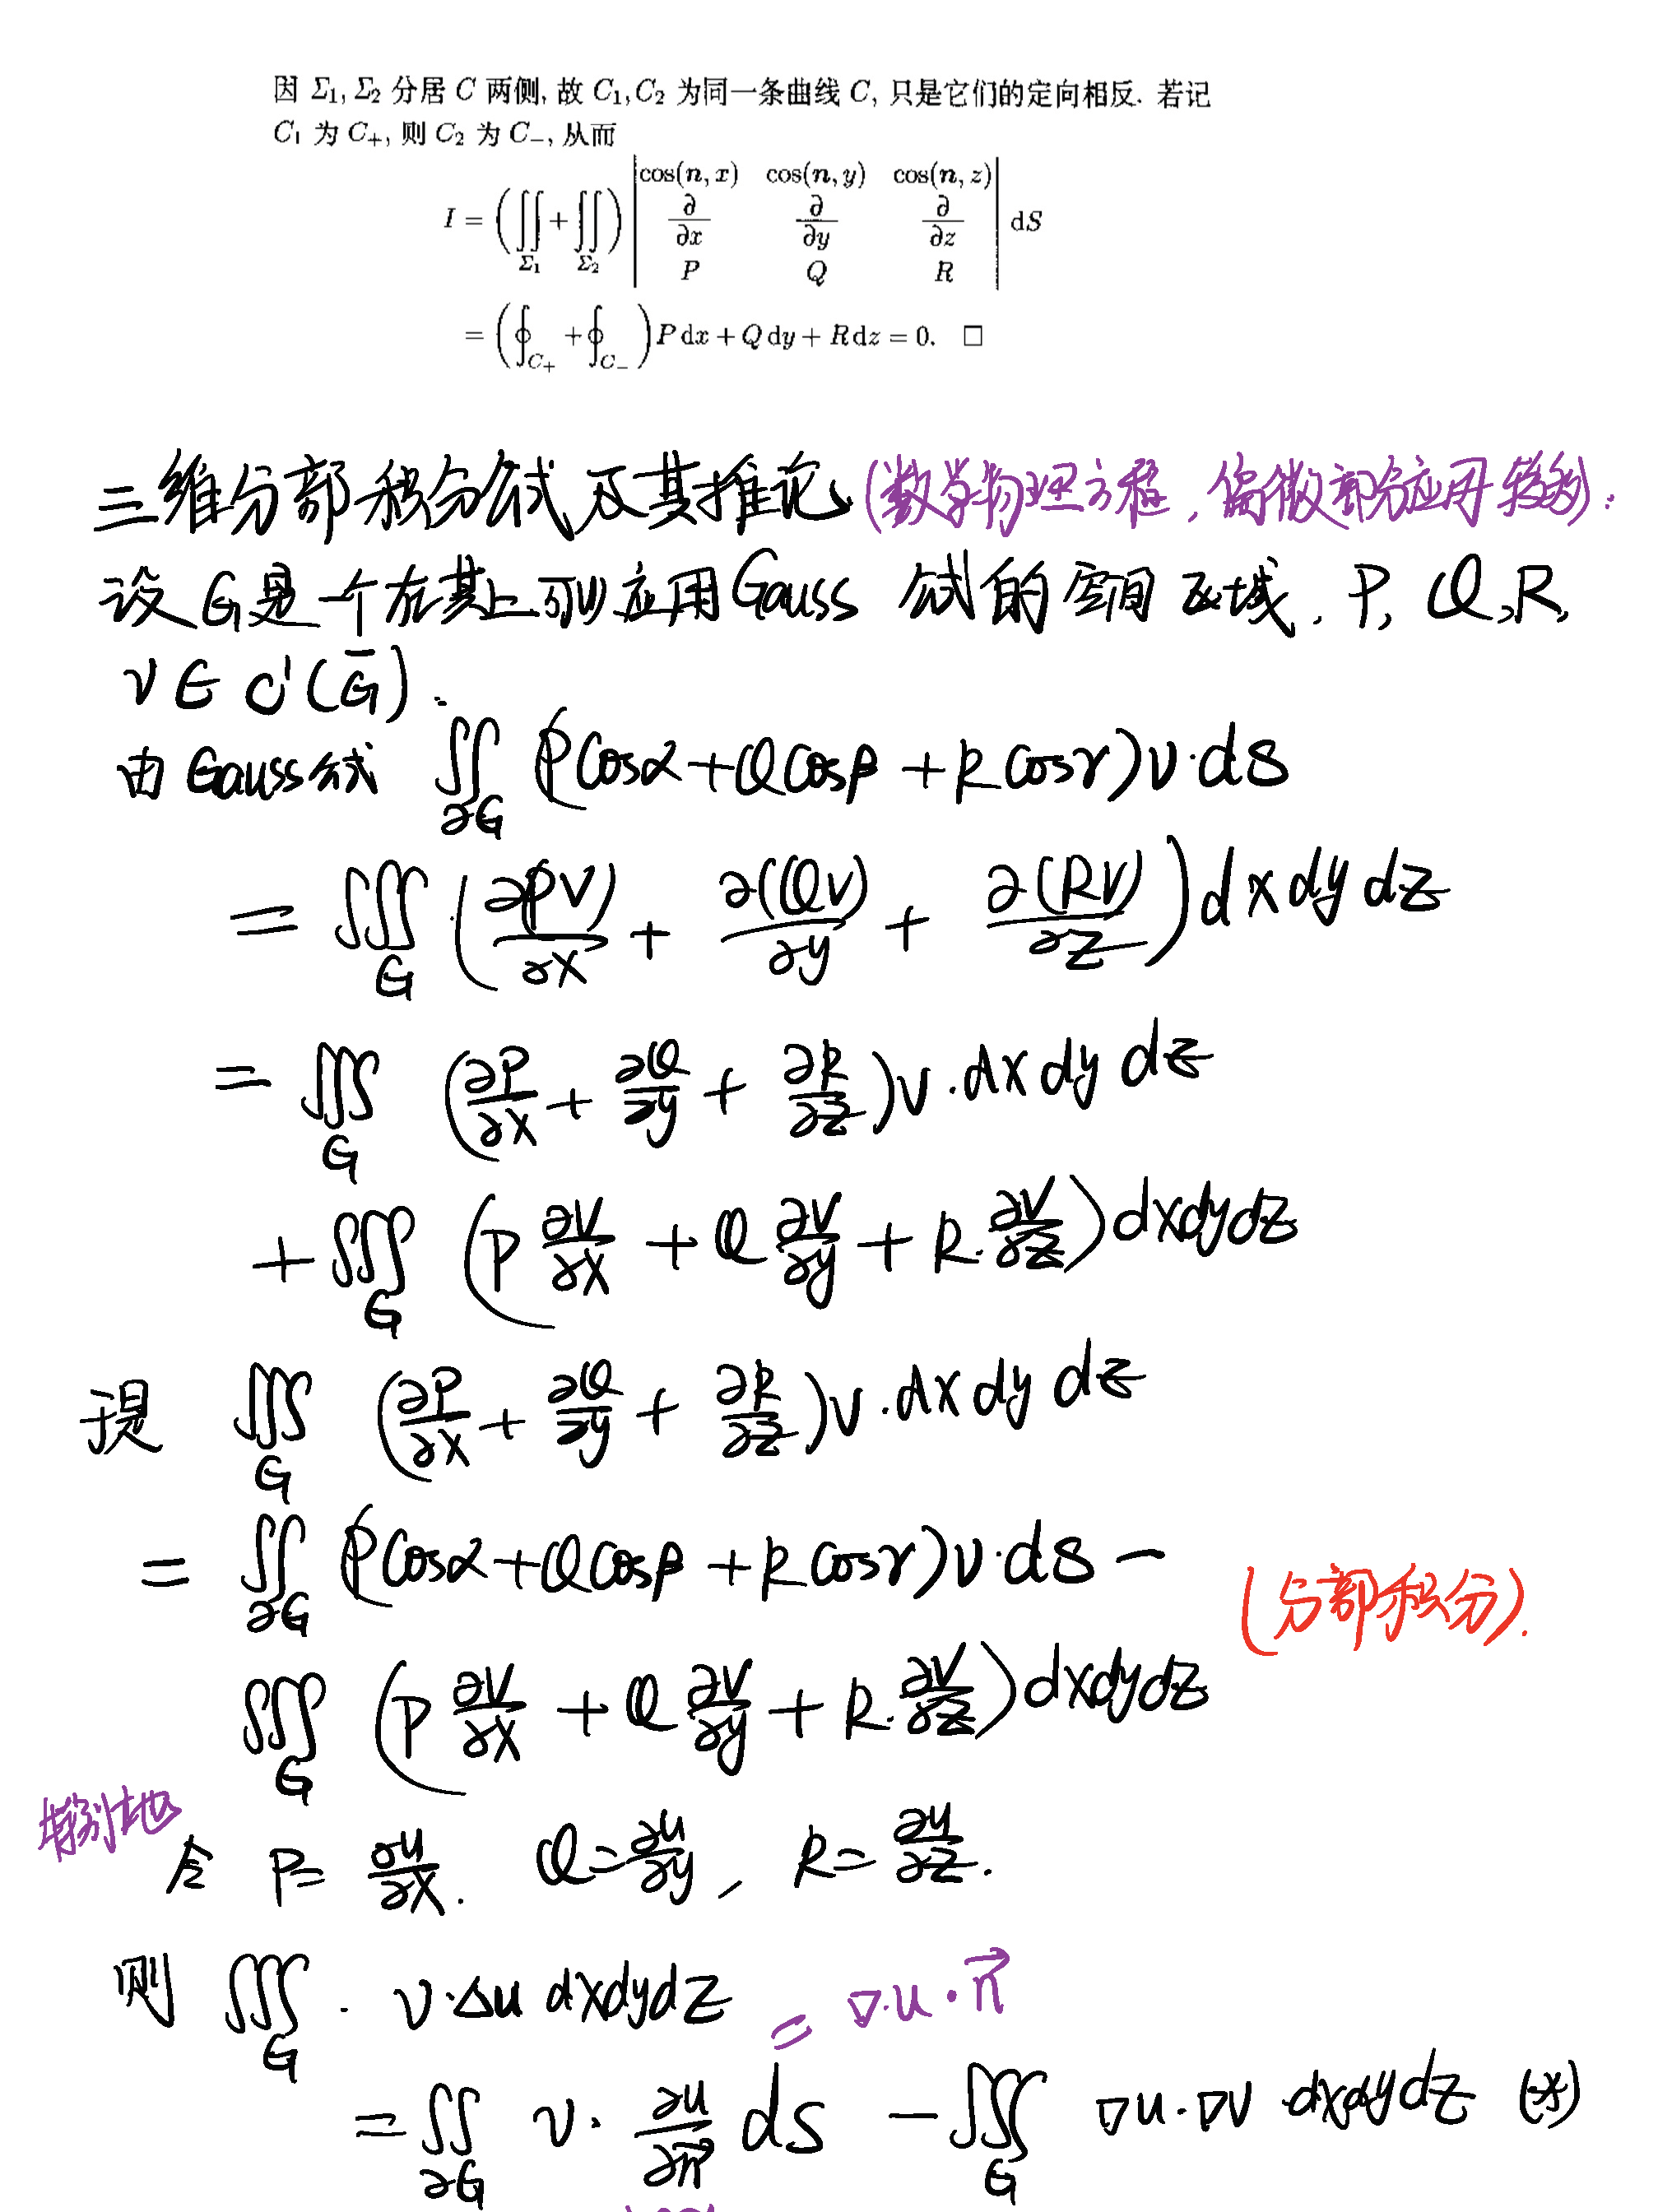 因 Σ₁, Σ₂ 分居 C 两侧, 故 C₁, C₂ 为同一条曲线 C, 只是它们的定向相反. 若记
C₁ 为 C₊, 则 C₂ 为 C₋, 从而
I = (∬_{Σ₁} + ∬_{Σ₂}) | cos(n, x) cos(n, y) cos(n, z) ; ∂/∂x ∂/∂y ∂/∂z ; P Q R | dS
= (∮_{C₊} + ∮_{C₋}) P dx + Q dy + R dz = 0. □
三维分部积分公式及其推论 (数学物理方程, 偏微部分应用较多).
设 G是一个在其上可以应用Gauss 公式的空间区域, P, Q, R,
v ∈ C¹(Ḡ).
由Gauss公式 ∬_{∂G} (Pcosα+Qcosβ+Rcosγ)v·dS
= ∭_G (∂(Pv)/∂x + ∂(Qv)/∂y + ∂(Rv)/∂z) dxdydz
= ∭_G (∂P/∂x + ∂Q/∂y + ∂R/∂z)v·dxdydz
+ ∭_G (P ∂v/∂x + Q ∂v/∂y + R·∂v/∂z) dxdydz
于是 ∭_G (∂P/∂x + ∂Q/∂y + ∂R/∂z)v·dxdydz
= ∬_{∂G} (Pcosα+Qcosβ+Rcosγ)v·dS −
(分部积分).
∭_G (P ∂v/∂x + Q ∂v/∂y + R·∂v/∂z) dxdydz
特别地
令 P= ∂u/∂x. Q=∂u/∂y, R=∂u/∂z.
则 ∭_G · v·Δu dxdydz
= ∇·u·n⃗
= ∬_{∂G} v· ∂u/∂n⃗ dS − ∭_G ∇u·∇v·dxdydz (*)